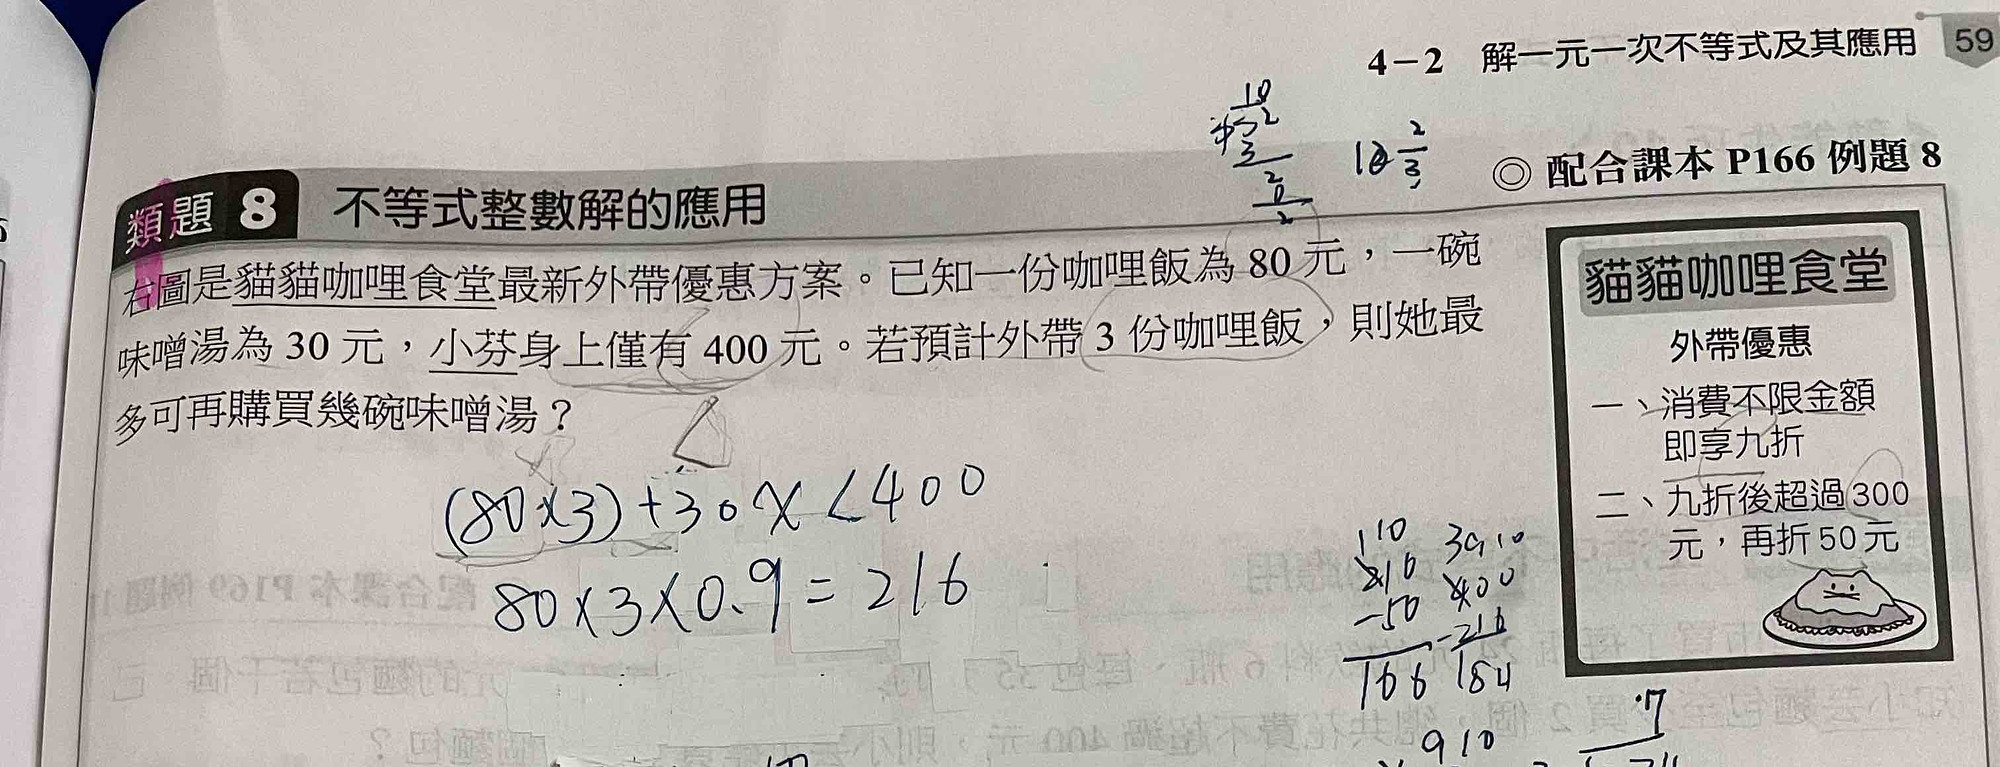 4－2 解一元一次不等式及其應用 59
◎ 配合課本 P166 例題 8
類題 8 不等式整數解的應用
右圖是貓貓咖哩食堂最新外帶優惠方案。已知一份咖哩飯為 80 元，一碗
味噌湯為 30 元，小芬身上僅有 400 元。若預計外帶 3 份咖哩飯，則她最
多可再購買幾碗味噌湯？
貓貓咖哩食堂
外帶優惠
一、消費不限金額
即享九折
二、九折後超過 300
元，再折 50 元
(80×3)+30x<400
80×3×0.9=216
-50
166
400
-216
184
910